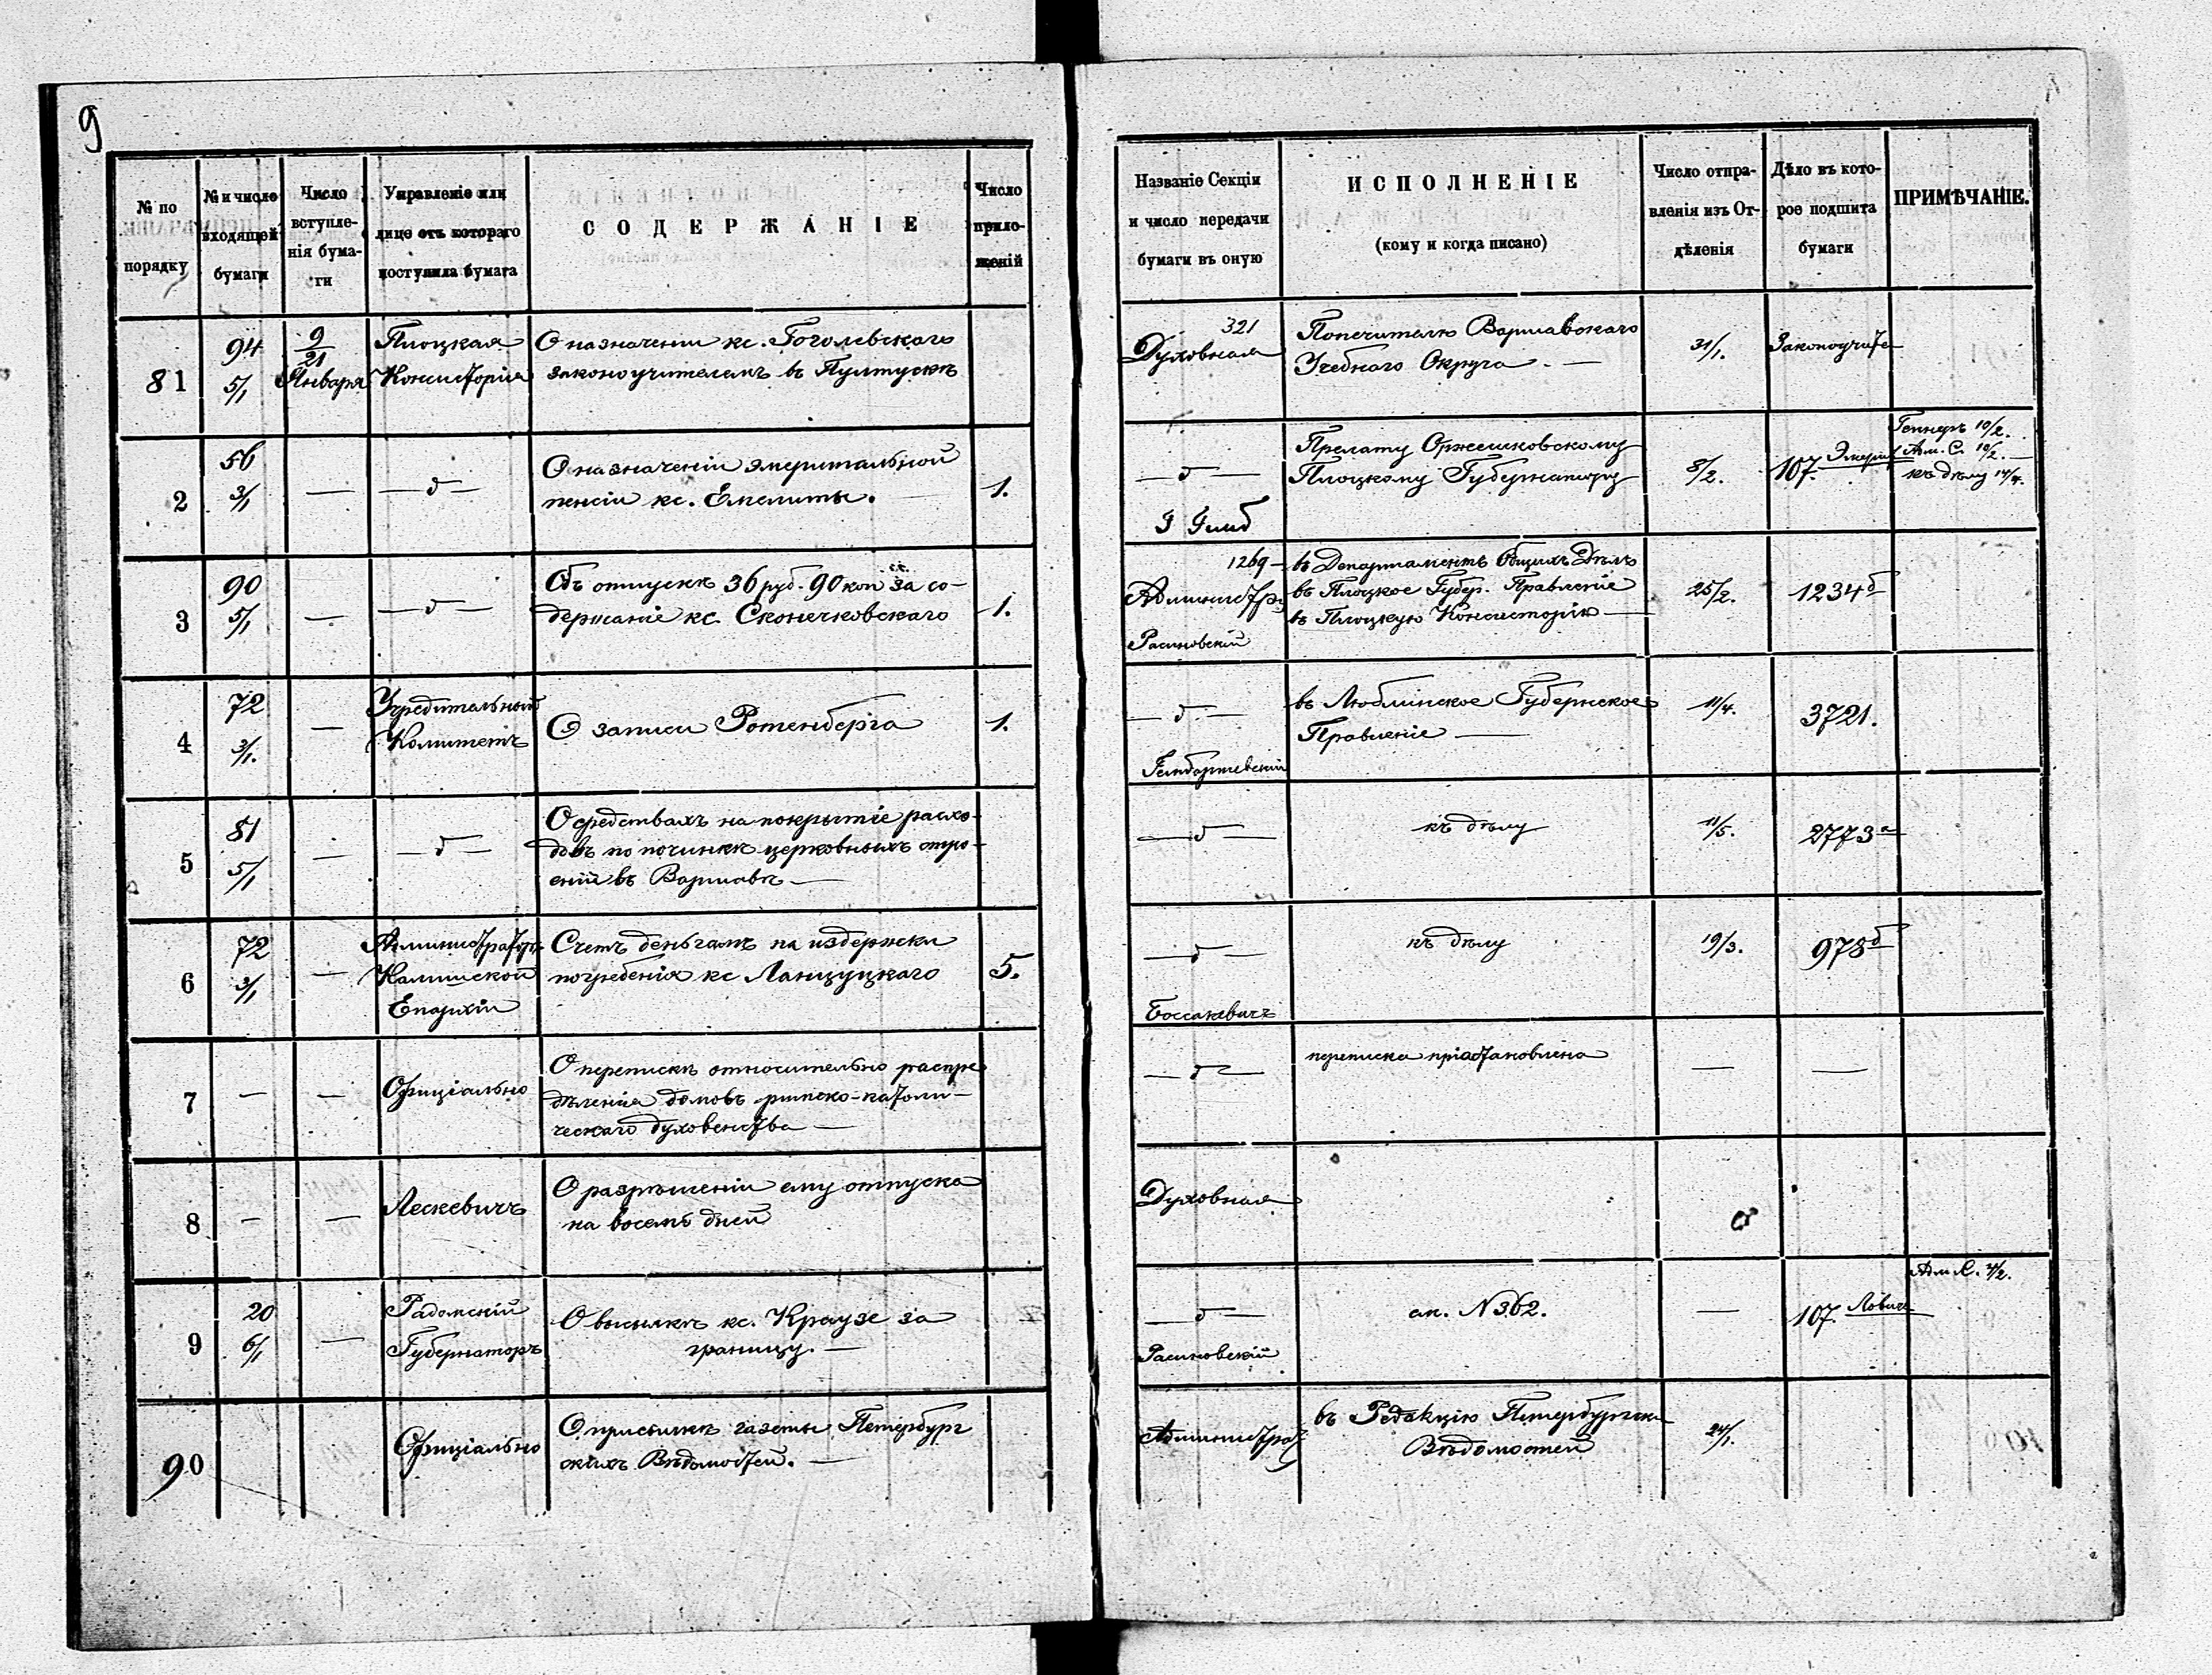 9
№ по порядку
№ и число входящей бумаги
Число вступле-
нія бума-
ги
Управленіе или
лице отъ котораго
поступила бумага
СОДЕРЖАНІЕ
Число
прило-
женій
Названіе Секціи
и число передачи
бумаги въ оную
ИСПОЛНЕНІЕ
(кому и когда писано)
Число отпра-
вленія изъ От-
дѣленія
Дѣло въ кото-
рое подшита
бумаги
ПРИМѢЧАНІЕ.
81
94
5/1
9
21
Января
Плоцкая
Консисторія
О назначеніи кс. Гоголевскаго
законоучителемъ въ Пултускѣ
321
Духовная
Попечителю Варшавскаго
Учебнаго Округа. —
31/1.
Законоучите
2
56
3/1
—
— д —
О назначеніи эмеритальной
пенсіи кс. Емелиты.
1.
— д —
Прелату Оржешковскому
Плоцкому Губернатору
8/2.
107. Эмерит
10/2.
Адм. С. 10/2. —
къ дѣлу 14/4.
3
90
5/1
—
— д —
Объ отпускѣ 36 руб. 90 коп за со-
держаніе кс. Сконечковскаго
1.
1269 —
Администр.
въ Департаментъ Общихъ Дѣлъ
въ Плоцкое Губер. Правленіе
въ Плоцкую Консисторію —
25/2.
1234 б
4
72
3/1.
—
Учредительный
Комитетъ
О записи Ротенберга
1.
— д —
въ Люблинское Губернское
Правленіе —
11/4.
3721.
5
81
5/1
—
— д —
О средствахъ на покрытіе расхо-
довъ по починкѣ церковныхъ стро-
еній въ Варшавѣ —
— д —
къ дѣлу
11/5.
2773 а
6
72
3/1
—
Администраторъ
Калишской
Епархіи
Счетъ деньгамъ на издержки
погребенія кс Ланцуцкаго
5.
— д —
Боссакевичъ
къ дѣлу
19/3.
978 б
7
—
—
Официіально
О перепискѣ относительно распре
дѣленія домовъ римско-католи-
ческаго духовенства —
— д —
переписка пріастановлена
—
—
8
—
—
Лескевичъ
О разрѣшеніи ему отпуска
на восемь дней
Духовная
9
20
6/1
—
Радомскій
Губернаторъ
О высылкѣ кс. Краузе за
границу. —
— д —
см. N 362.
—
107. Лович
4/2.
90
Официіально
О присылкѣ газеты Петербург
скихъ Вѣдомостей. —
Администрат
въ Редакцію Петербургски
Вѣдомостей
24/1.